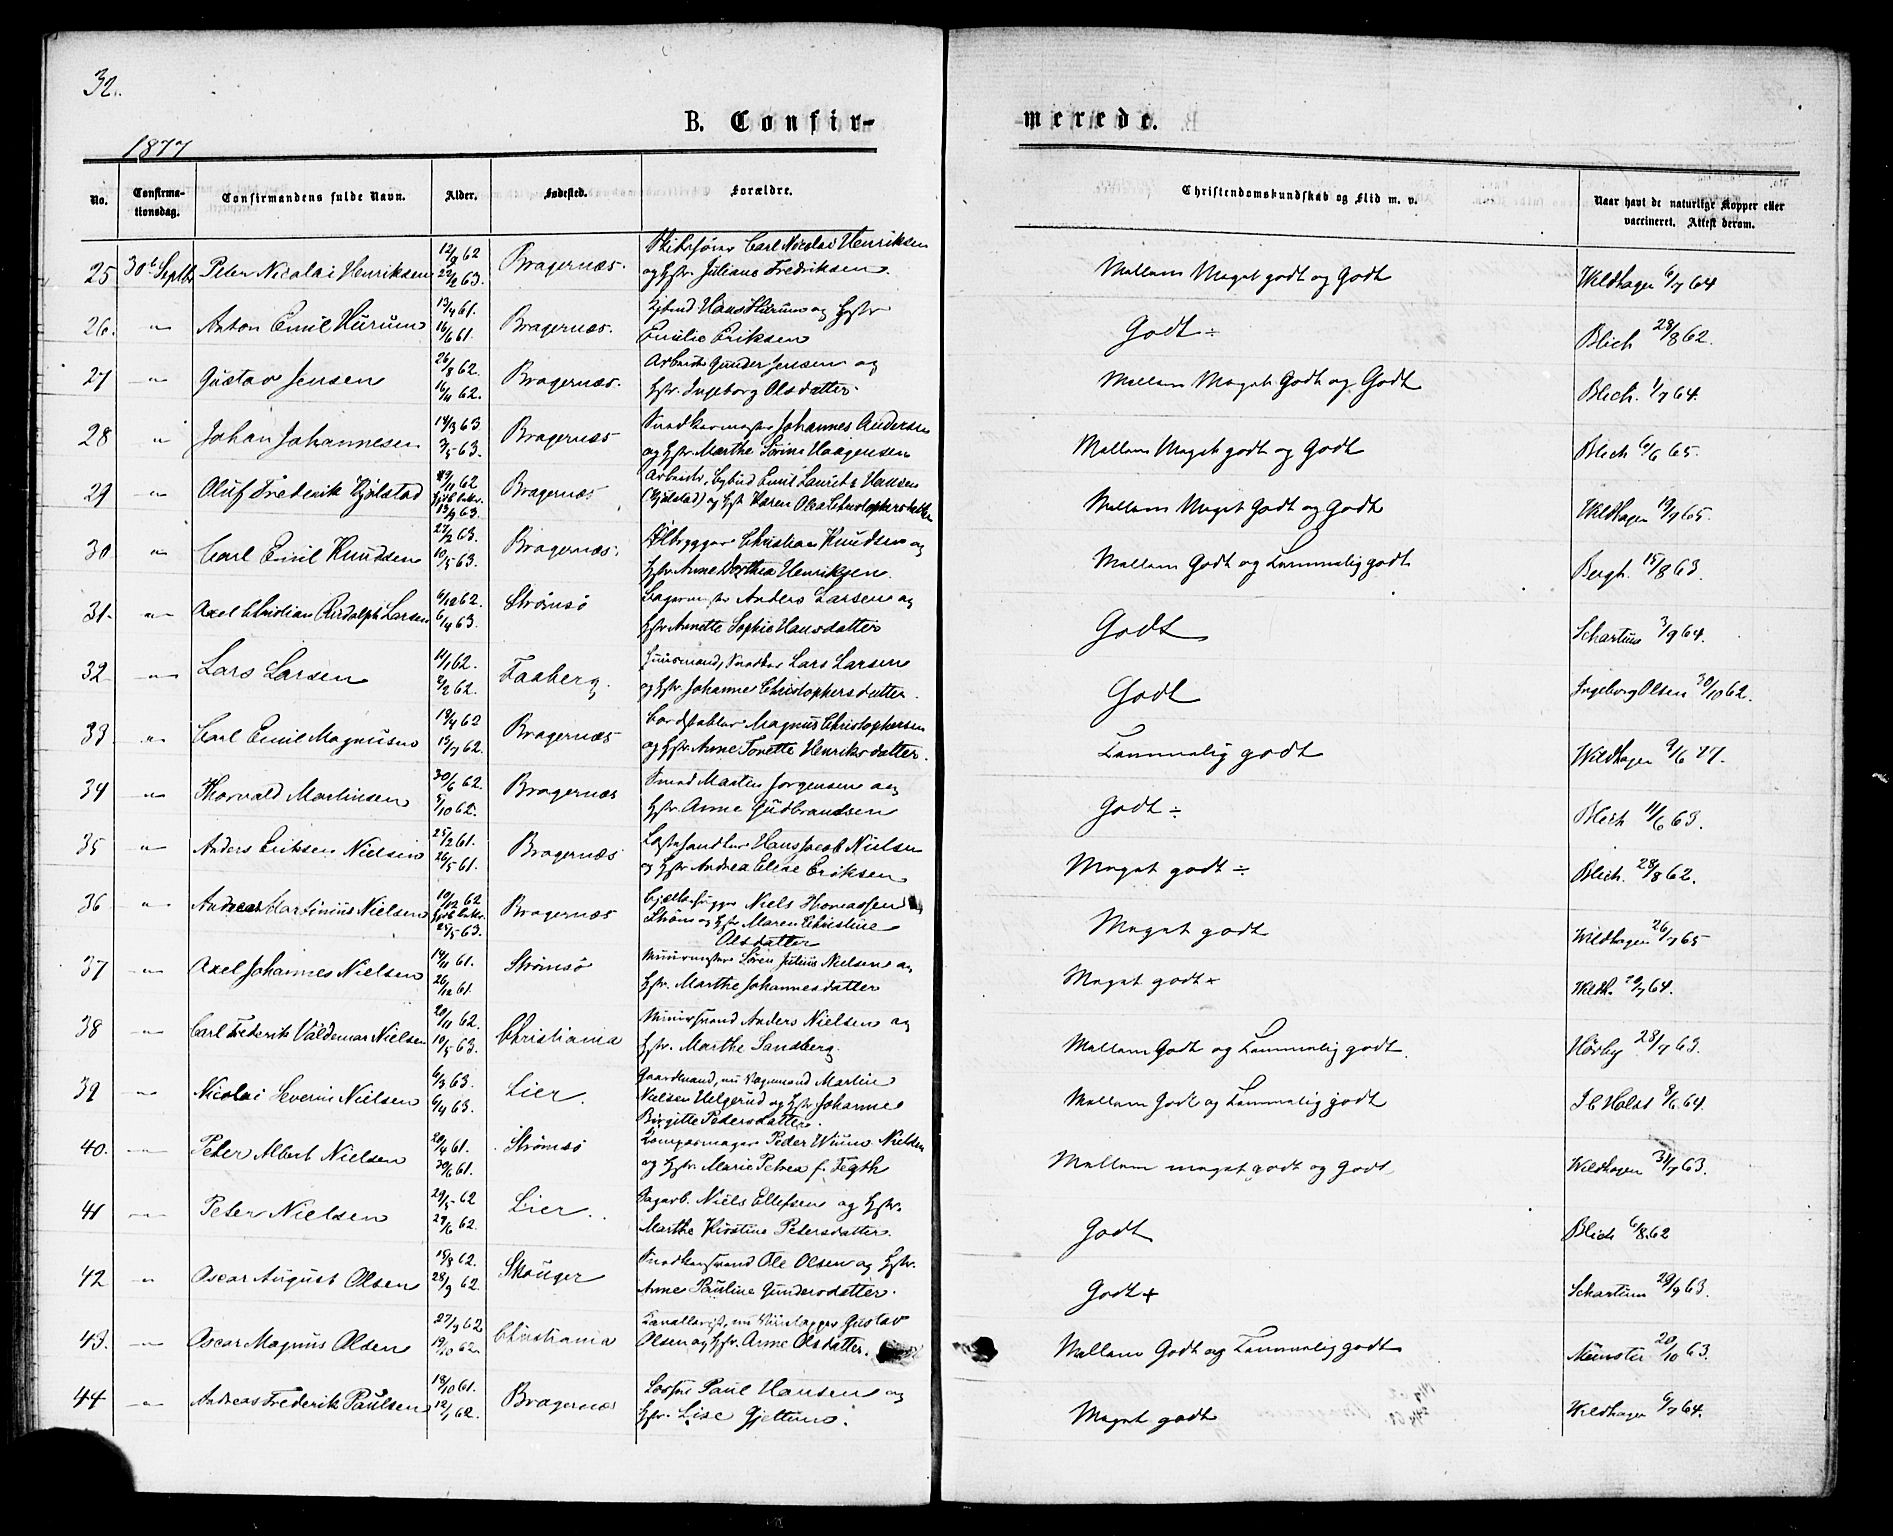 32.
B. Confir-
merede.
1877
No. Confirma-tionsdag. Confirmandens fulde Navn. Alder. Fødested. Forældre. Christendomskundskab og Flid m. v. Naar havt de naturlige Kopper eller vaccineret. Attest derom.
25 30te Septbr Peter Nicolai Henriksen 12/9 62 22/2 63. Bragernæs. Skibsfører Carl Nicolai Henriksen
og Hstr. Juliane Fredriksen Mellem Meget godt og Godt Wildhagen 6/7 64
26. " Anton Emil Hurum 13/4 61. 16/6 61. Bragernæs. Hans Hurum og Hstr
Emilie Eriksen Godt ÷ Blich 28/8 62.
27 " Gustav Jensen 26/8 62. 16/11 62. Bragernæs. Arbeider Gunder Jensen og
Hstr. Ingeborg Olsdatter. Mellem Meget Godt og Godt Blich. 1/7 64.
28 " Johan Johannesen 14/3 63 3/5 63. Bragernæs Snedkermester Johannes Andersen
og Hstr. Marthe Sørine Haagensen Mellem Meget godt og Godt Blich 6/6 65.
29 " Oluf Frederik Hjølstad 29/11 62 13/9 63. Bragernæs Arbeider, Emil Lauritz Hansen
(Hjølstad) og Hst Karen Olea Christophersdatter Mellem Meget Godt og Godt Wildhagen 19/9 65.
30 " Carl Emil Knudsen 27/2 63. 10/5 63. Bragernæs. Ølbrygger Christian Knudsen og
Hstr. Anne Dorthea Henriksen. Mellem Godt og Temmelig godt Bergh. 15/8 63.
31. " Axel Christian Rudolph Larsen 6/12 62. 6/4 63. Strømsø Anders Larsen og
Hstr Annette Sophie Hansdatter Godt Schartum 3/9 64.
32 " Lars Larsen 11/1 62. 2/2 62. Faaberg. Huusmand, Snedker Lars Larsen
og Hstr. Johanne Christophersdatter. Godt Ingeborg Olsen 30/10 62.
33 " Carl Emil Magnusen 19/4 62 13/7 62. Bragernæs Magnus Christophersen
og Hstr. Anne Tonette Henriksdatter. Temmelig godt Wildhagen 9/6 77.
34 " Thorvald Martinsen 30/6 62. 5/10 62. Bragernæs Smed Martin Jørgensen og
Hstr. Anne Gudbrandsen Godt ÷ Blich 11/6 63.
35 " Anders Eriksen Nielsen 25/2 61. 26/5 61. Bragernæs Hans Jacob Nielsen
og Hstr Andrea Elise Eriksen Meget godt ÷ Blich. 28/8 62.
36 " Andreas Martinius Nielsen 10/12 62 25/5 63. Bragernæs Niels Thomassen
Strøm og Hstr Maren Christine
Olsdatter Meget godt Wildhagen 26/7 65
37 " Axel Johannes Nielsen 14/11 61. 26/12 61. Strømsø Muurmester Søren Julius Nielsen og
Hstr. Marthe Johannesdatter Meget godt Wildh. 64.
38 " Carl Frederik Valdemar Nielsen 20/11 62. 10/5 63. Christiania Muursvend Anders Nielsen og
Hstr. Marthe Sandberg. Mellem Godt og Temmelig godt. Hørby 28/7 63.
39 " Nicolai Severin Nielsen 6/3 63. 6/4 63. Lier. Gaardmand, nu Vognmand Martin
Nielsen Helgerud og Hstr Johanne
Birgitte Pedersdatter. Mellem Godt og Temmelig godt Holst 8/6 64.
40. " Peter Albert Nielsen 20/4 61. 30/6 61. Strømsø Kompasmager Peder Wium Nielsen
og Hstr. Marie Petrea f. Fegth Mellem meget godt og Godt Wildhagen 31/7 63.
41 " Peter Nielsen 29/5 62 29/6 62. Lier. Niels Ellefsen og Hstr.
Marthe Kirstine Petersdatter. Godt Blich 6/8 62
42 " Oscar August Olsen 15/8 62. 28/9 62. Skouger Snedkersvend Ole Olsen og Hstr.
Anne Pauline Gundersdatter. Godt + Schartum 29/9 63.
43. " Oscar Magnus Olsen 27/7 62 19/10 62. Christiania Kavallerist, nu Gustav
Olsen og Hstr. Anne Olsdatter. Mellem Godt og Temmelig godt Münster 20/10 63.
44 " Andreas Frederik Paulsen 18/10 61. 12/1 62. Bragernæs Paul Hansen og
Hstr. Lise Gjeltum. Meget godt Wildhagen 6/7 64.